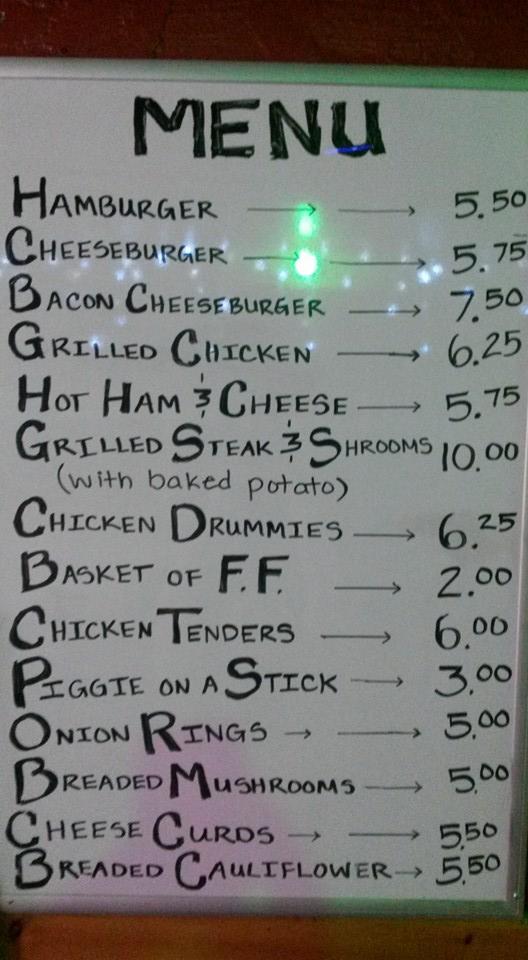 MENU
HAMBURGER → → 5.50
CHEESEBURGER → → 5.75
BACON CHEESEBURGER → 7.50
GRILLED CHICKEN → 6.25
HOT HAM & CHEESE → 5.75
GRILLED STEAK & SHROOMS 10.00
(with baked potato)
CHICKEN DRUMMIES → 6.25
BASKET OF F.F. → 2.00
CHICKEN TENDERS → 6.00
PIGGIE ON A STICK → 3.00
ONION RINGS → → 5.00
BREADED MUSHROOMS → 5.00
CHEESE CURDS → → 5.50
BREADED CAULIFLOWER → 5.50